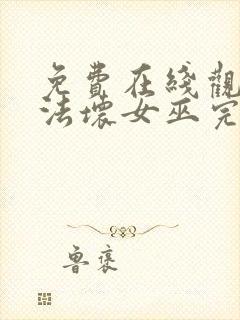 免費在綫觀
法壞女巫完
魯褒